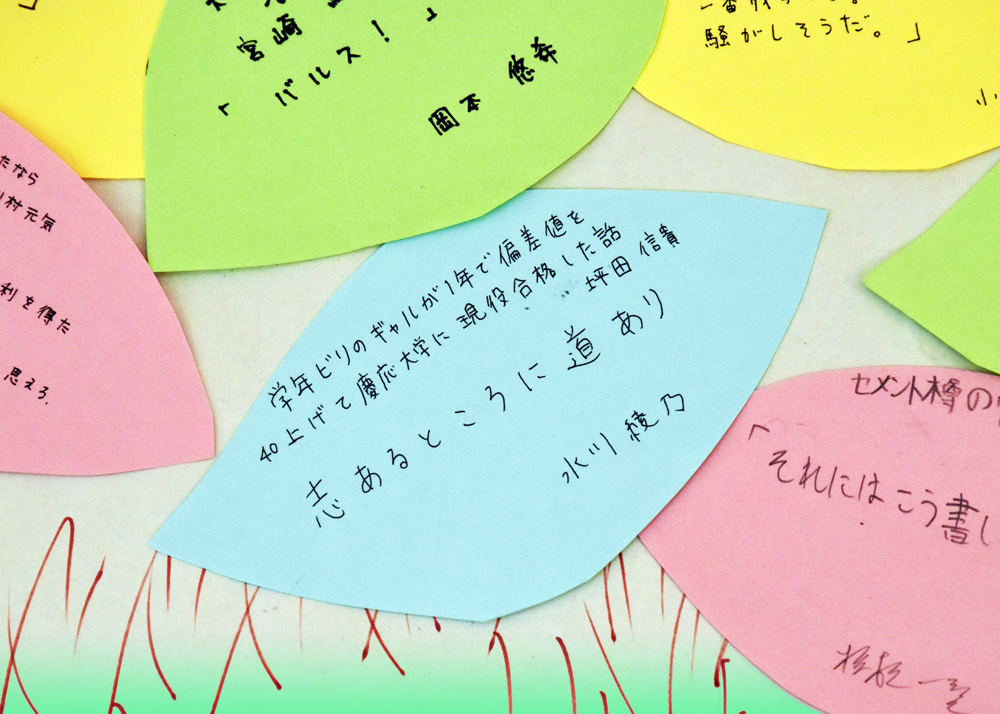 宮崎
「バルス！」
岡本 悠希
騒がしそうだ。」
小
たなら
村元気
利を得た
思えろ.
学年ビリのギャルが1年で偏差値を
40上げて慶応大学に現役合格した話
坪田 信貴
志あるところに道あり
水川 綾乃
セメント樽の
「それにはこう書し